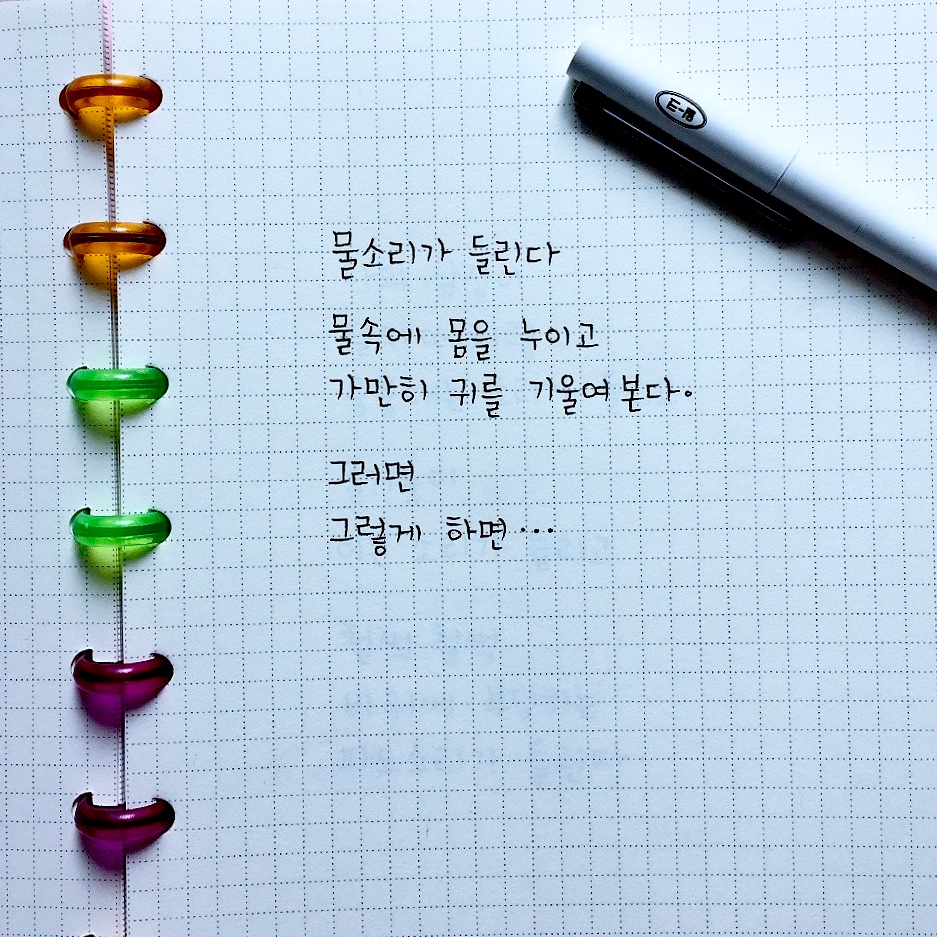 물소리가 들린다
물속에 몸을 누이고
가만히 귀를 기울여 본다.
그러면
그렇게 하면...